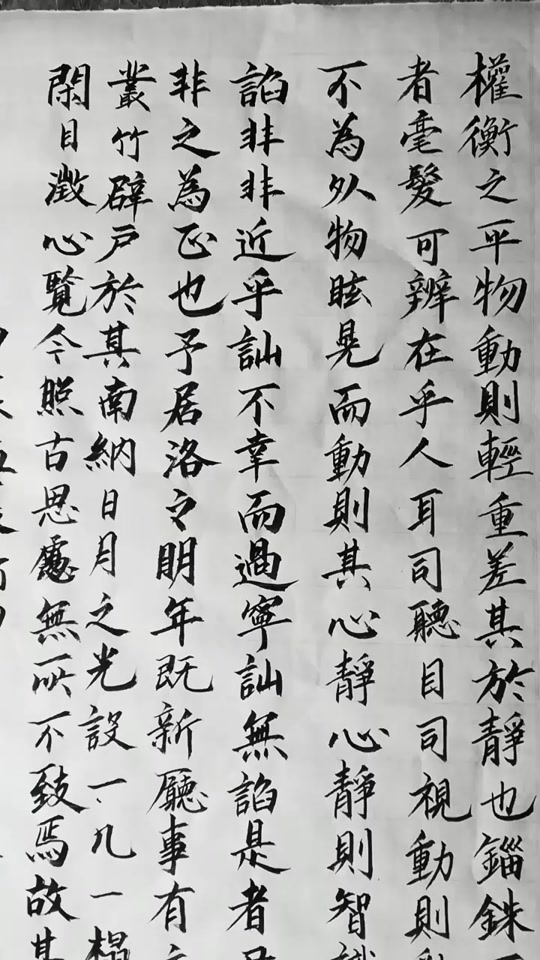 權衡之平物動則輕重差其於靜也錙銖
者毫髮可辨在乎人耳司聽目司視動則
不為外物眩晃而動則其心靜心靜則智識
諂非非近乎訕不幸而過寧訕無諂是者
非之為正也予居洛之明年既新廳事有
叢竹辟戶於其南納日月之光設一几一榻
閑目澂心覽今照古思慮無所不致焉故其